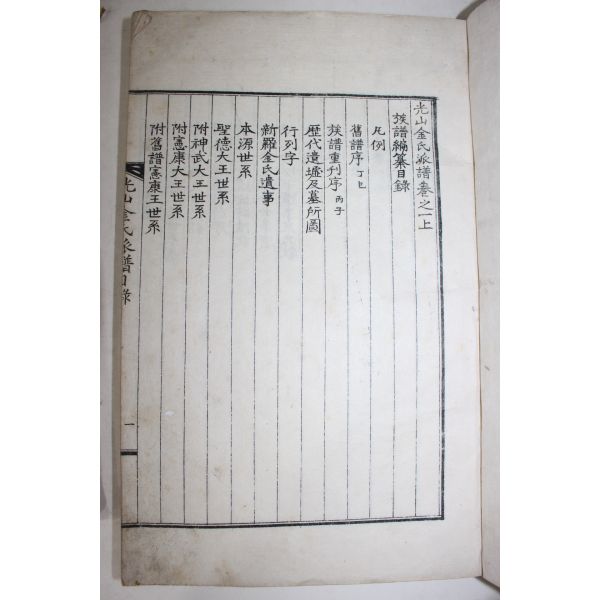 光山金氏派譜卷之一上
族譜編纂目錄
凡例
舊譜序 丁巳
族譜重刊序 丙子
歷代遺墟及墓所圖
行列字
新羅金氏遺事
本源世系
聖德大王世系
附神武大王世系
附憲康大王世系
附舊譜憲康王世系
光山金氏派譜目錄
一